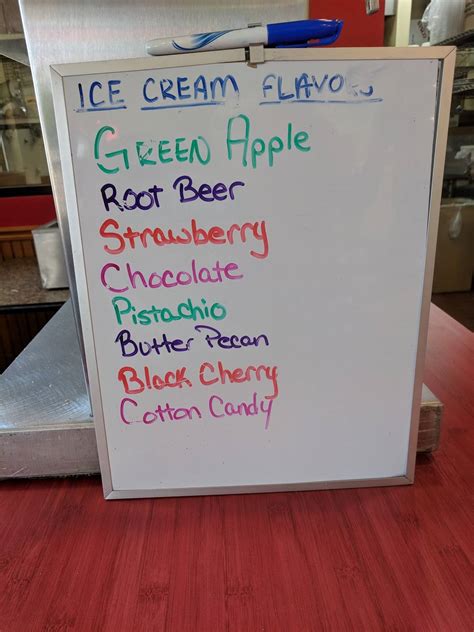 ICE CREAM
GREEN Apple
Root Beer
Strawberry
Chocolate
Pistachio
Butter Pecan
Black Cherry
Cotton Candy